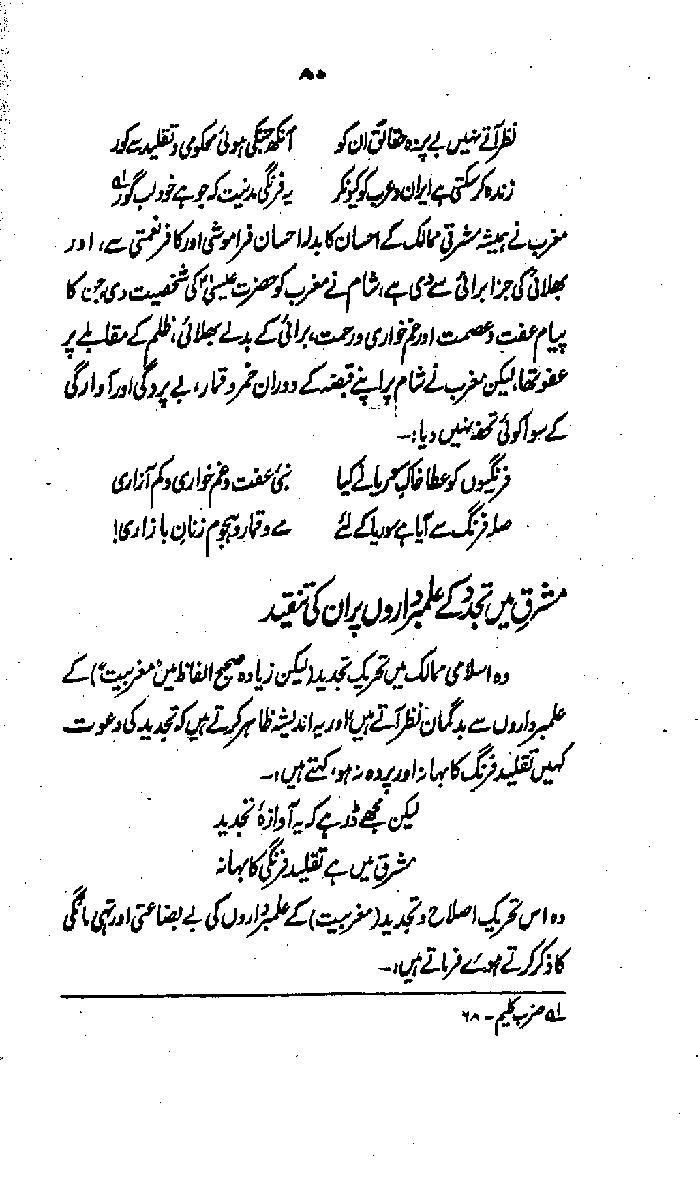 ۸۰
نظر آتے نہیں بے پردہ حقائق ان کو آنکھ جنکی ہوئی محکومی و تقلید سے کور
زندہ کر سکتی ہے ایران و عرب کو کیونکر یہ فرنگی مدنیت کہ جو ہے خود لب گور؎۱
مغرب نے ہمیشہ مشرقی ممالک کے احسان کا بدلہ احسان فراموشی اور کافر نعمتی سے، اور
بھلائی کی جزا برائی سے دی ہے، شام نے مغرب کو حضرت عیسیٰؑ کی شخصیت دی جن کا
پیام عفت و عصمت اور غم خواری و رحمت، برائی کے بدلے بھلائی، ظلم کے مقابلے پر
عفو تھا، لیکن مغرب نے شام پر اپنے قبضہ کے دوران خمر و قمار، بے پردگی اور آوارگی
کے سوا کوئی تحفہ نہیں دیا:۔
فرنگیوں کو عطا خاکِ سوریا نے کیا نبیٔ عفت و غم خواری و کم آزاری
صلہ فرنگ سے آیا ہے سوریا کے لئے مے و قمار و ہجوم زنانِ بازاری!
مشرق میں تجدد کے علمبرداروں پر ان کی تنقید
وہ اسلامی ممالک میں تحریک تجدید (لیکن زیادہ صحیح الفاظ میں "مغربیت") کے
علمبرداروں سے بدگمان نظر آتے ہیں اور یہ اندیشہ ظاہر کرتے ہیں کہ تجدید کی دعوت
کہیں تقلید فرنگ کا بہانہ اور پردہ نہ ہو، کہتے ہیں:۔
لیکن مجھے ڈر ہے کہ یہ آوازۂ تجدید
مشرق میں ہے تقلید فرنگی کا بہانہ
وہ اس تحریک اصلاح و تجدید (مغربیت) کے علمبرداروں کی بے بضاعتی اور تہی مانگی
کا ذکر کرتے ہوئے فرماتے ہیں:۔
؎۱ ضرب کلیم - ۶۸